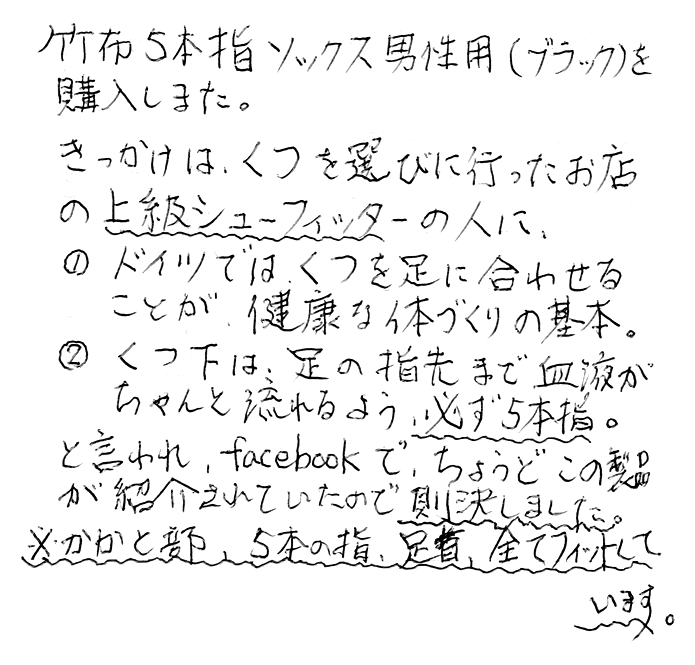 竹布5本指ソックス男性用(ブラック)を
購入しました。
きっかけは、くつを選びに行ったお店
の上級シューフィッターの人に、
① ドイツでは、くつを足に合わせる
ことが、健康な体づくりの基本。
② くつ下は、足の指先まで血液が
ちゃんと流れるよう、必ず5本指。
と言われ、facebookで、ちょうどこの製品
が紹介されていたので則決しました。
※かかと部、5本の指、足首、全てフィットして
います。